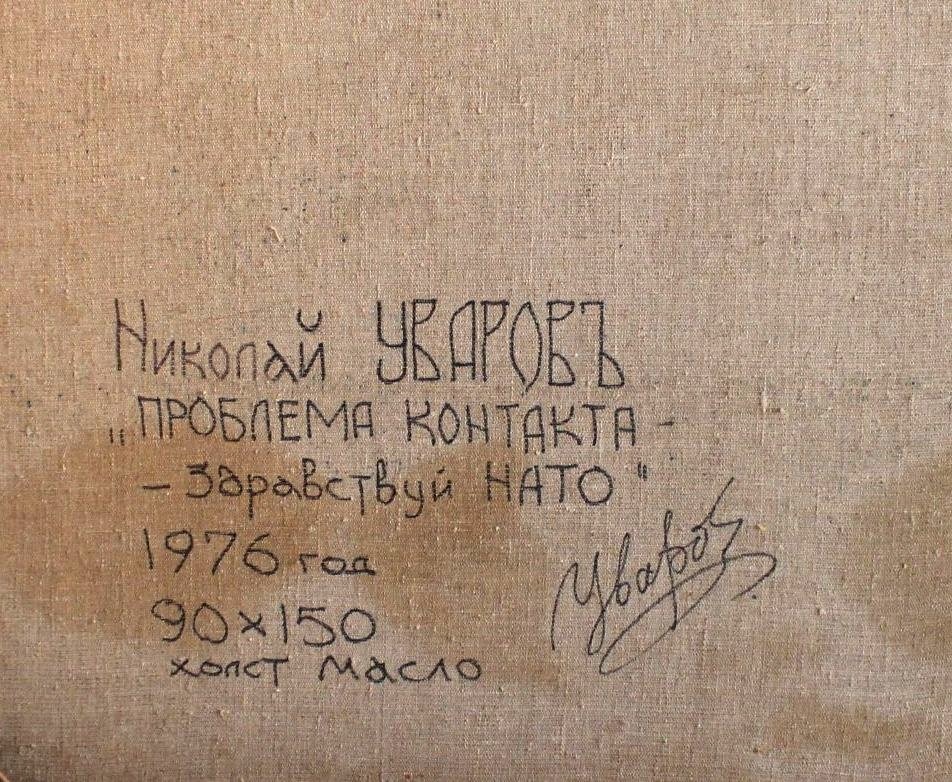 Николай УВАРОВЪ
„ПРОБЛЕМА КОНТАКТА -
- Здравствуй НАТО"
1976 год
90х150
холст масло
Уваров